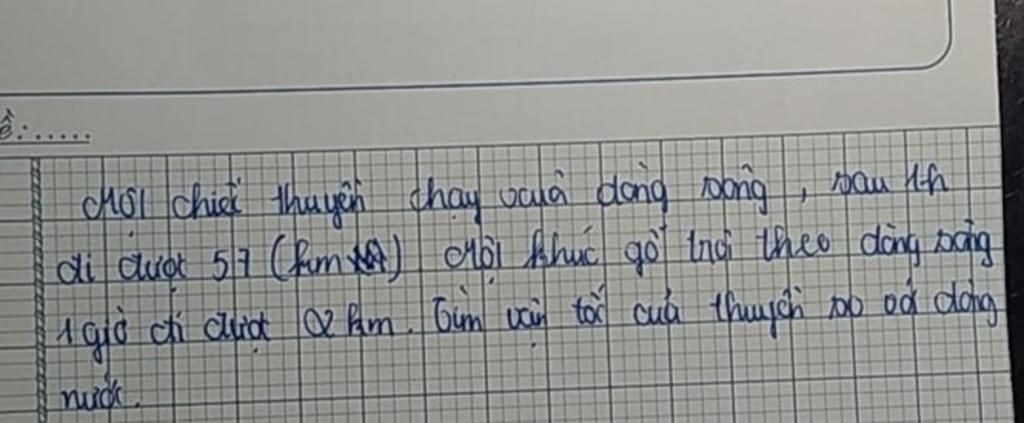 ề:.....
Một chiếc thuyền chạy dòng sông, sau 1h
đi được 57 (km) Một khúc gỗ trôi theo dòng sông
1 giờ đi được 2 km. Tìm vận tốc của thuyền so với dòng
nước.